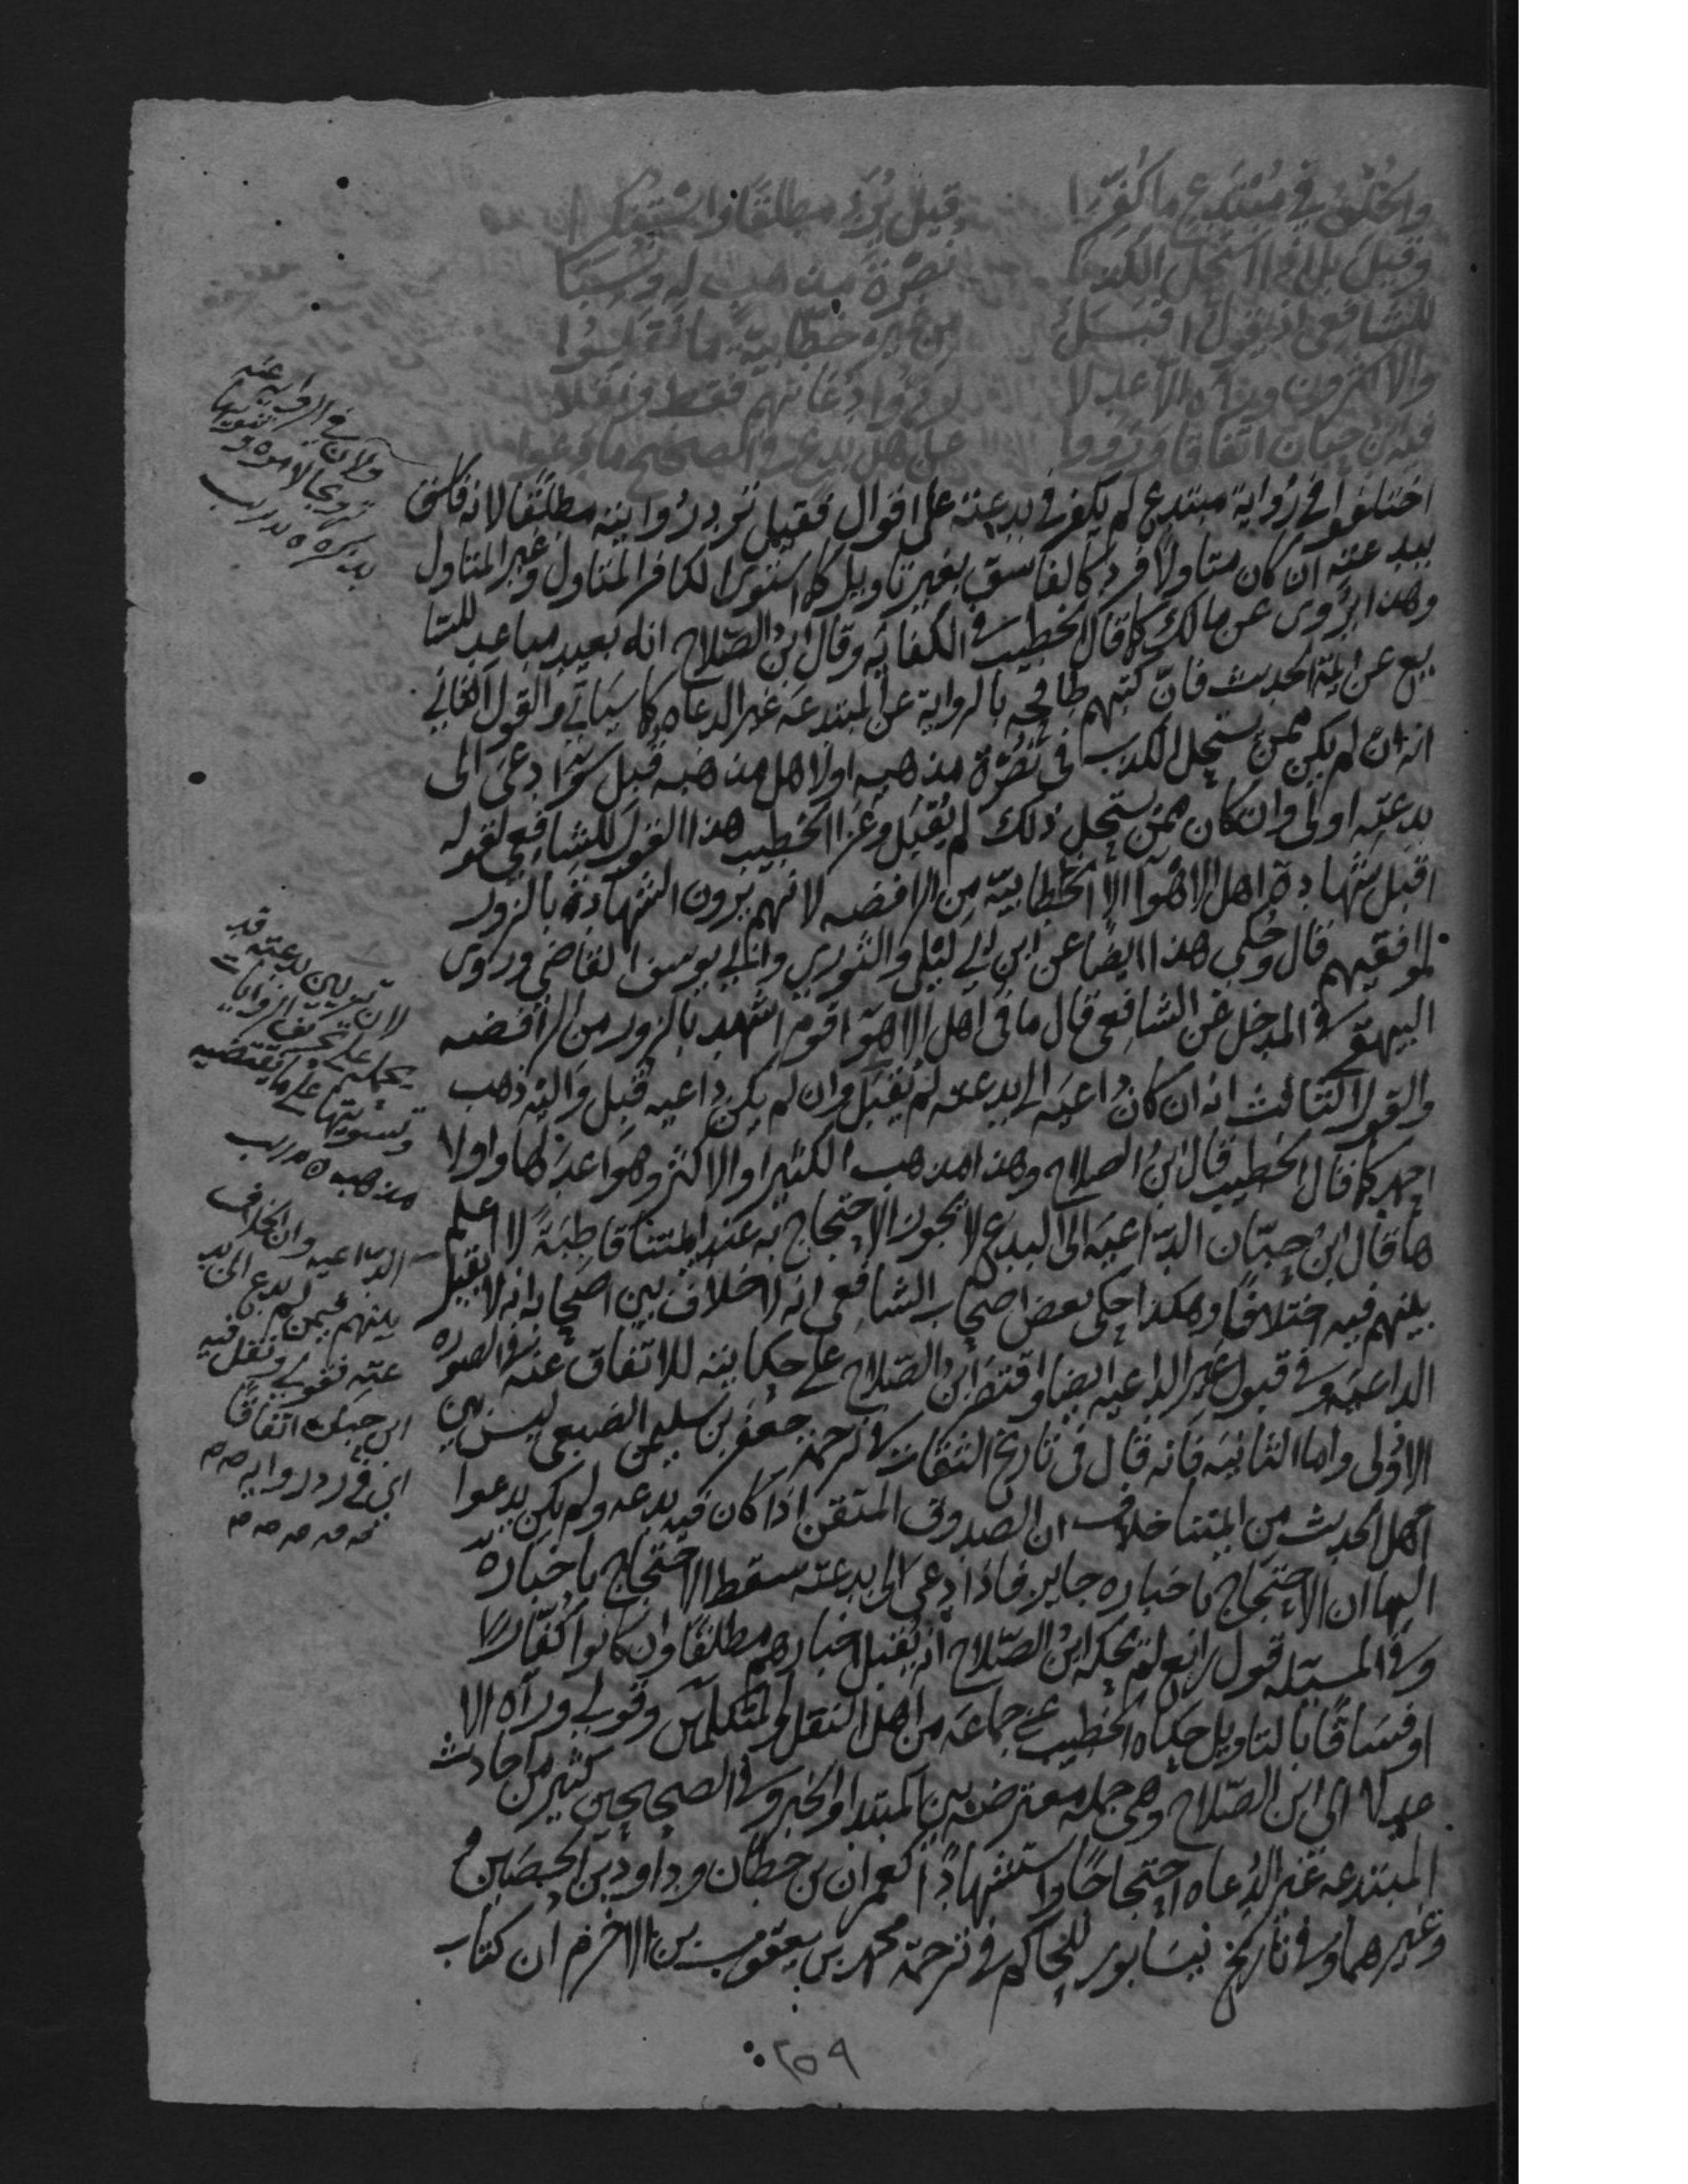 والخلف في مبتدع ما كفرا قيل يرد مطلقا واستنكرا
وقيل بل إذا استحل الكذبا نصرة مذهب له ونسبا
للشافعي إذ يقول اقبل من غير خطابية ما نقلوا
والاكثرون ورآه الاعدلا ردوا دعاتهم فقط ونقلا
فيه ابن حبان اتفاقا ورووا عن اهل بدع في الصحيح ما دعوا
اختلفوا في رواية مبتدع لم يكفر في بدعته على اقوال فقيل ترد روايته مطلقا لانه فاسق
ببدعته ان كان متاولا فرد كالفاسق بغير تاويل كما استوى الكافر المتاول وغير المتاول
وهذا يروى عن مالك كما قال الخطيب في الكفاية وقال ابن الصلاح انه بعيد مباعد للشا
يع عن ايمة الحديث فان كتبهم طافحه بالرواية عن المبتدعه غير الدعاه كما سياتي والقول الثاني
انه ان لم يكن ممن يستحل الكذب في نصرة مذهبه اولاهل مذهبه قبل سوآ دعى الى
بدعته اولى وان كان ممن يستحل ذلك لم يقبل وعزا الخطيب هذا القول للشافعي لقوله
اقبل شهادة اهل الاهوا الا الخطابية من الرافضه لانهم يرون الشهادة بالزور
لموافقيهم قال وحكي هذا ايضا عن ابن ابي ليلي والثوري وابي يوسف القاضي وروى
البيهقي في المدخل عن الشافعي قال ما في اهل الاهوا قوم اشهد بالزور من الرافضه
والقول الثالث انه ان كان داعيه الى بدعته لم يقبل وان لم يكن داعيه قبل واليه ذهب
احمد كما قال الخطيب قال ابن الصلاح وهذا مذهب الكثير او الاكثر وهو اعدلها واولا
ها قال ابن حبان الداعيه الى البدع لا يجوز الاحتجاج به عند ايمتنا قاطبة لا اعلم
بينهم فيه اختلافا وهكذا حكى بعض اصحاب الشافعي انه لا خلاف بين اصحابه انه لا يقبل
الداعيه وفي قبول غير الداعيه ايضا واقتصر ابن الصلاح على حكايته للاتفاق عنه في الصوره
الاولى واما الثانيه فانه قال في تاريخ الثقات في ترجمة جعفر بن سليمن الضبعي ليس بين
اهل الحديث من ايمتنا خلاف ان الصدوق المتقن اذا كان فيه بدعه ولم يكن يدعوا
اليها ان الاحتجاج باخباره جايز فاذا دعى الى بدعته سقط الاحتجاج باخباره
وفي المسئله قول رابع لم يحكه ابن الصلاح انه يقبل اخبارهم مطلقا وان كانوا كفارا
او فساقا بالتاويل حكاه الخطيب عن جماعة من اهل النقل والمتكلمين وقولي ورآه الا
عدلا اي ابن الصلاح وهي جمله معترضه بين المبتدا والخبر وفي الصحيحين كثير من احاديث
المبتدعه غير الدعاه احتجاجا واستشهادا كعمران بن حطان وداود بن الحصين
وغيرهما وفي تاريخ نيسابور للحاكم في ترجمة محمد بن يعقوب بن الاخرم ان كتاب
ولان في الروايه عنه
ترويجا لامره وتنويها
بذكره ه تدريب
لان تزيين بدعته قد
يحمله على تحريف الروايات
وتسويتها على ما يقتضيه
مذهبه ه تدريب
الداعيه وان الخلاف
بينهم فيمن لم يدع الى بد
عته فقولي ونقل فيه
ابن حبان اتفاقا
اي في رد روايه
٢٥٩